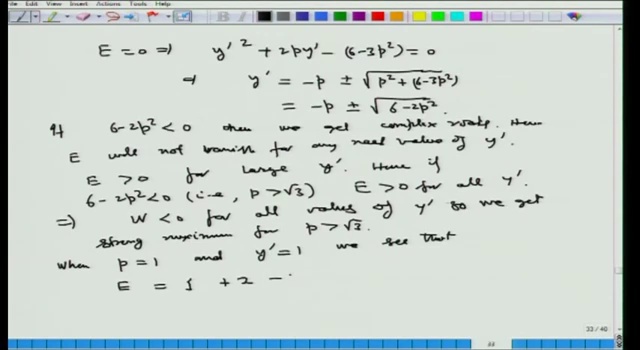 File Edit View Insert Actions Tools Help
E = 0 ⇒ y'² + 2py' - (6-3p²) = 0
⇒ y' = -p ± √p² + (6-3p²)
= -p ± √6-2p²
If 6-2p² < 0 then we get complex roots. Hence
E will not vanish for any real value of y'.
E > 0 for large y'. Hence if
6-2p² < 0 (i.e., p > √3) E > 0 for all y'.
⇒ W < 0 for all values of y' so we get
strong maximum for p > √3.
When p = 1 and y' = 1 we see that
E = 1 + 2 -
33 / 40
33